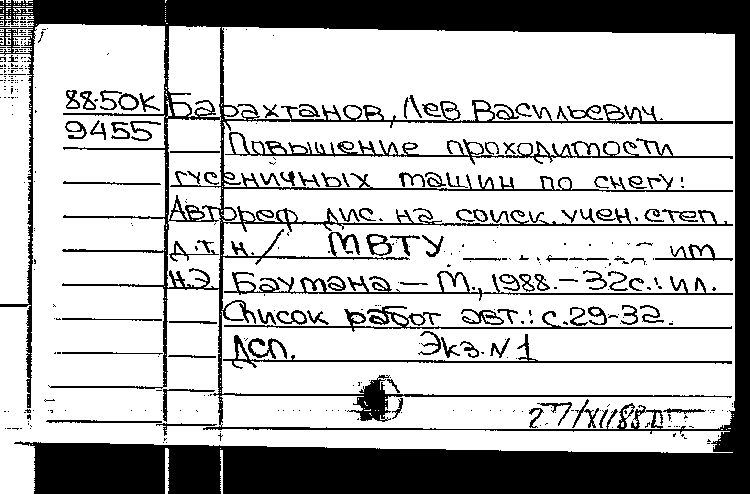 88-50К Барахтанов, Лев Васильевич.
9455 Повышение проходимости
гусеничных машин по снегу:
Автореф. дис. на соиск. учен. степ.
д.т.н. / МВТУ им
Н.Э. Баумана. — М., 1988. — 32с.: ил.
Список работ авт.: с.29-32.
ДСП. Экз. N 1
27/XII88